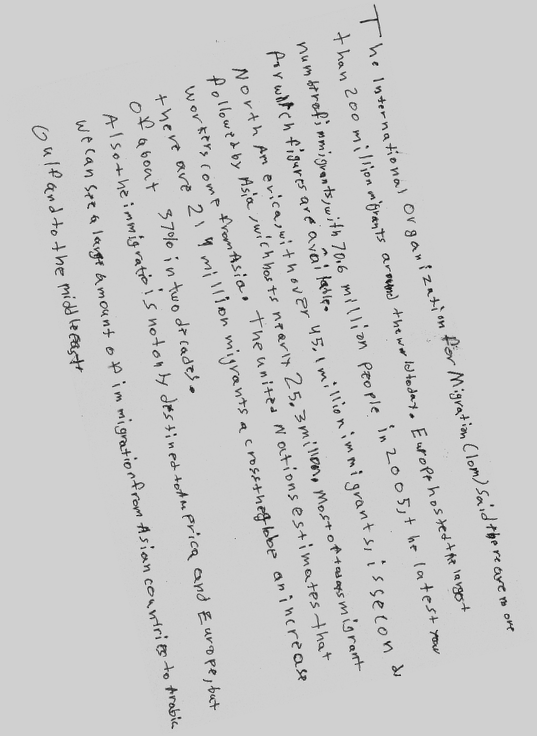 The International Organization for Migration (Iom) said there are more
than 200 million migrants around the world today. Europe hosted the largest
number of immigrants, with 70.6 million people in 2005, the latest year
for which figures are available.
North America, with over 45,1 million immigrants, is second &
followed by Asia, wich hosts nearly 25.3 million. Most of todays migrant
workers come from Asia. The united Nations estimates that
there are 214 million migrants across the globe an increase
of about 37% in two decades.
Also the immigratio is not only destined to America and Europe, but
we can see a large amount of immigration from Asian countries to Arabic
Gulf and to the middle east